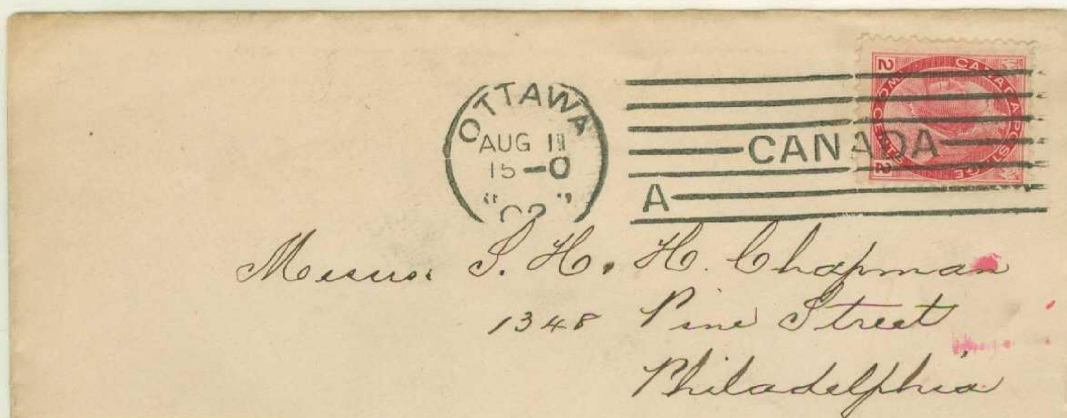 OTTAWA
AUG 11
15-0
"02"
CANADA
A
CANADA POSTAGE
TWO CENTS
2 2
Messrs. S. H. H. Chapman
1348 Pine Street
Philadelphia